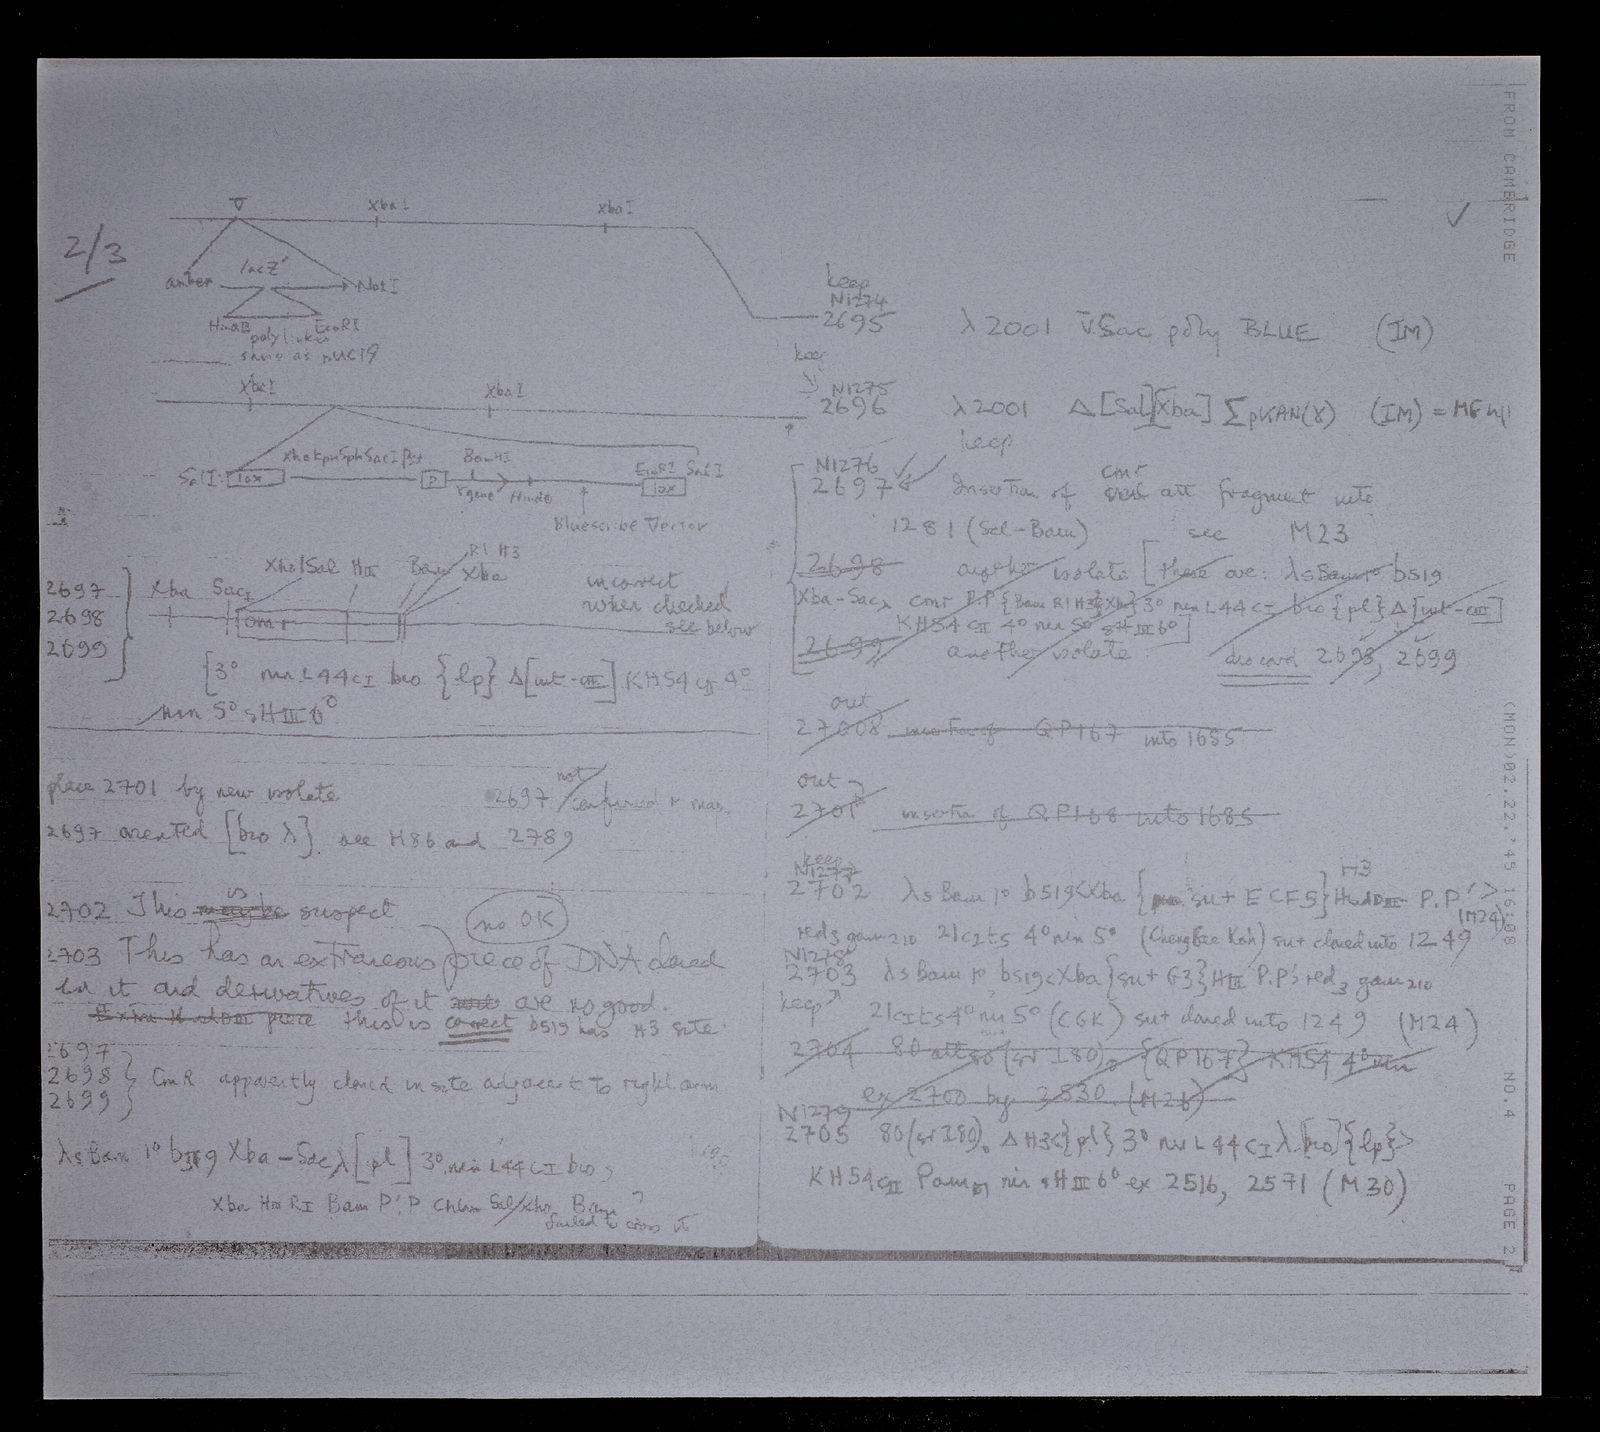 2/3
▽ XbaI XbaI
amber lacZ' NotI
HindIII EcoRI
polylinker
same as pUC19
XbaI XbaI
XhoI KpnI Sph SacI Pst BamHI EcoRI SalI
SalI lox P lox
γ gene HindIII
Bluescribe Vector
2697
2698
2699
Xba SacI Xho/Sal HIII Bam R1 H3
Xba
cmr
incorrect
when checked
see below
[3° nin L44 cI bio {lp} Δ[int-cIII] KH54 cII 4°
nin 5° sHIII 6°
place 2701 by new isolate
2697 not confirmed
2697 oriented [bio λ]. see M86 and 2789
2702 This may be is suspect
no OK
2703 This has an extraneous piece of DNA cloned
in it and derivatives of it are no good.
piece this is correct b519 has H3 site
2697
2698
2699
CmR apparently cloned in site adjacent to right arm
λsBam 1° b519 Xba-Sac λ[pl] 3° nin L44 cI bio,
Xba H3 R1 Bam P'.P Chlam Sal/Xho Bam ?
failed to cross it
keep
N1274
2695 λ2001 ▽Sac poly BLUE (IM)
keep
N1275
2696 λ2001 Δ[Sal][Xba] ΣpKAN(γ) (IM) =
keep
N1276 cmr
2697 Insertion of att fragment into
1281 (Sal-Bam) see M23
2698 another isolate [these are: λsBam1° b519
Xba-Sacλ cmr P.P'{Bam R1 H3}Xba} 3° nin L44 cI bio {pl} Δ[int-cIII]
KH54 cII 4° nin 5° sHIII 6°]
2699 another isolate discard 2698, 2699
out
27008 insertion of QP167 into 1685
out
2701 insertion of QP168 into 1685
keep
N1277 H3
2702 λsBam 1° b519<Xba {su+ ECF5} HindIII P.P'>
(M24)
red3 gam210 21cIts 4° nin 5° (Cheng Gee Koh) su+ cloned into 1249
N1278
2703 λsBam 1° b519<Xba{su+ G3}HIII P.P'> red3 gam210
keep 21cIts 4° nin 5° (CGK) su+ cloned into 1249 (M24)
2704 80 att80 (sr I80)° {QP167} KH54 4° nin
ex 2700 by 2530 (M26)
N1279
2705 80(srI80)° ΔH3<{pl} 3° nin L44 cI λ[bio]{lp}>
KH54cII Pam nin sHIII 6° ex 2516, 2571 (M30)
✓
FROM CAMBRIDGE (MON)02.22.'45 16:08 NO.4 PAGE 2